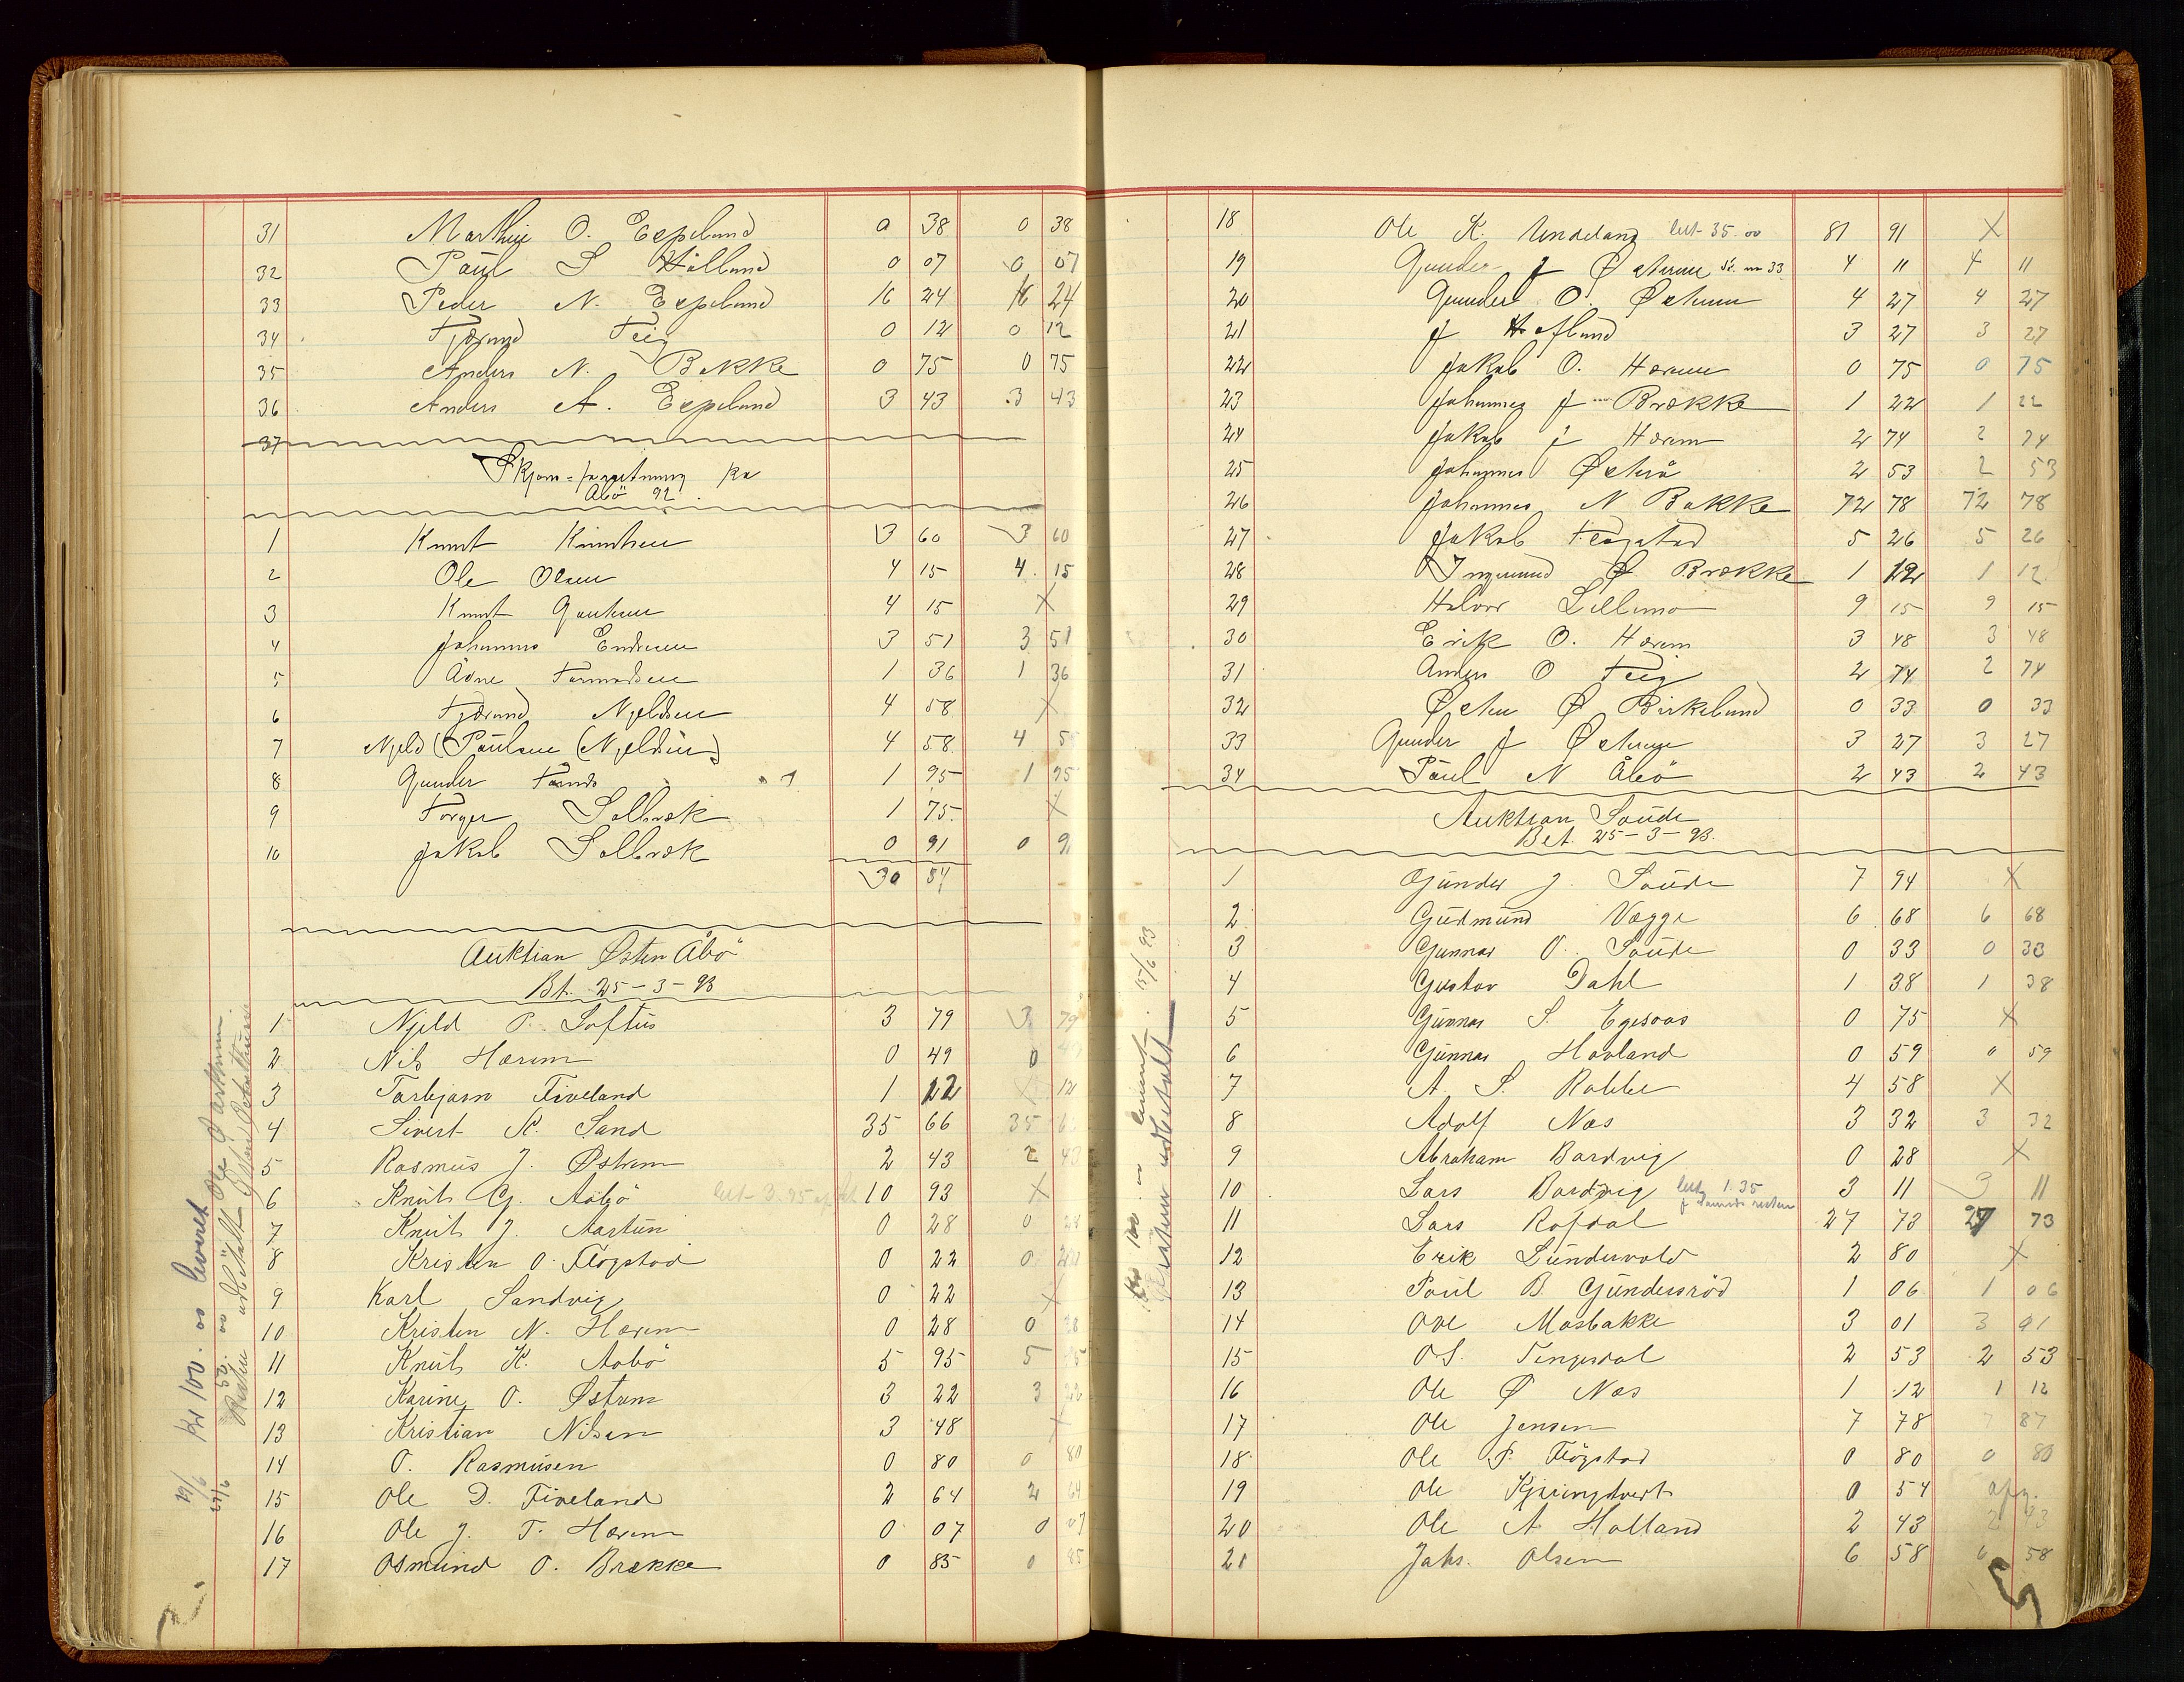 31 Marthie O. Espeland 0 38 0 38
32 Paul S Hålland 0 07 0 07
33 Peder N. Espeland 16 24 16 24
34 Tjærand Teig 0 12 0 12
35 Anders N. Bakke 0 75 0 75
36 Anders A. Espeland 3 43 3 43
37
Skjøn=forretning
Åbö 92
1 Knut Knutsen 3 60 3 60
2 Ole Olsen 4 15 4 15
3 Knut Gautsen 4 15 X
4 Johannes Endresen 3 51 3 51
5 Adne Tormodsen 1 36 1 36
6 Tjærand Njeldsen 4 58 X
7 Njeld (Paulsen (Njeldsen) 4 58 4
8 Gunder 1 95 1 95
9 Torger Solbræk 1 75 X
10 Jakob Solbræk 0 91 0 91
30 54
Auktion Østen Åbö
Bt. 25-3-93
1 Njeld P. Loftus 3 79 3 79
2 Nils Hærem 0 49 0
3 Torbjørn Fiveland 1 12 12
4 Sivert K. Sand 35 66 35
5 Rasmus J. Østrem 2 43 2 43
6 Knut G. Aabö 10 93 X
7 Knut J. Aartun 0 28 0
8 Kristen O. Flögstad 0 22 0
9 Karl Sandvig 0 22 X
10 Kristen N. Hærem 0 28 0
11 Knut K. Aabö 5 95 5
12 Karine O. Østrem 3 22 3 22
13 Kristian Nilsen 3 48 X
14 O. Rasmusen 0 80 0 80
15 Ole D. Fiveland 2 64 2 64
16 Ole J. T. Hærem 0 07 0 07
17 Osmund O. Brække 0 85 0 85
29/6 Kr 100. oo leveret
27/6 50. oo udbetalt Ole
Resten udbetalt
18 Ole K. Undeland 35 oo 81 91 X
19 Gunder J Østrem 33 4 11 4 11
20 Gunder O. Østrem 4 27 4 27
21 J Hofland 3 27 3 27
22 Jakob O. Hærem 0 75 0 75
23 Johannes J Brække 1 22 1 22
24 Jakob J Hærem 2 74 2 74
25 Johannes Østrå 2 53 2 53
26 Johannes N Bakke 72 78 72 78
27 Jakob Flögstad 5 26 5 26
28 Ingmund Ø Brække 1 12 1 12
29 Halvor Lillemo 9 15 9 15
30 Erik O. Hærem 3 48 3 48
31 Anders O Teig 2 74 2 74
32 Østen Ø Birkeland 0 33 0 33
33 Gunder J Østrem 3 27 3 27
34 Paul N Åbö 2 43 2 43
Auktion Saude
Bet. 25-3-93.
1 Gunder J. Saude 7 94 X
2 Gudmund Vægge 6 68 6 68
3 Gunnar O. Saude 0 33 0 33
4 Gustav Dahl 1 38 1 38
5 Gunnar S. Egesaas 0 75 X
6 Gunnar Hovland 0 59 0 59
7 A. S. Rabbe 4 58 X
8 Adolf Næs 3 32 3 32
9 Abraham Bardvig 0 28 X
10 Lars Bardvig 1.35 3 11 3 11
11 Lars Rofdal 27 73 27 73
12 Erik Lundervold 2 80 X
13 Paul B. Gundersröd 1 06 1 06
14 Ove Mosbakke 3 01 3 01
15 O S. Tengesdal 2 53 2 53
16 Ole Ø Næs 1 12 1 12
17 Ole Jensen 7 78 7 87
18 Ole P. Flögstad 0 80 0 80
19 Ole 0 54
20 Ole A Holland 2 43 2 43
21 Johs. Olsen 6 58 6 58
Kr 100 oo leveret 15/6 93
Resten udbetalt